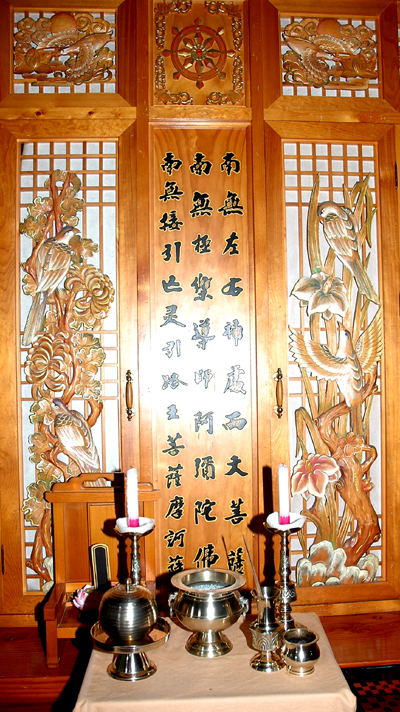 南無左右補處兩大菩薩
南無極樂導師阿彌陀佛
南無接引亡灵引路王菩薩摩訶薩